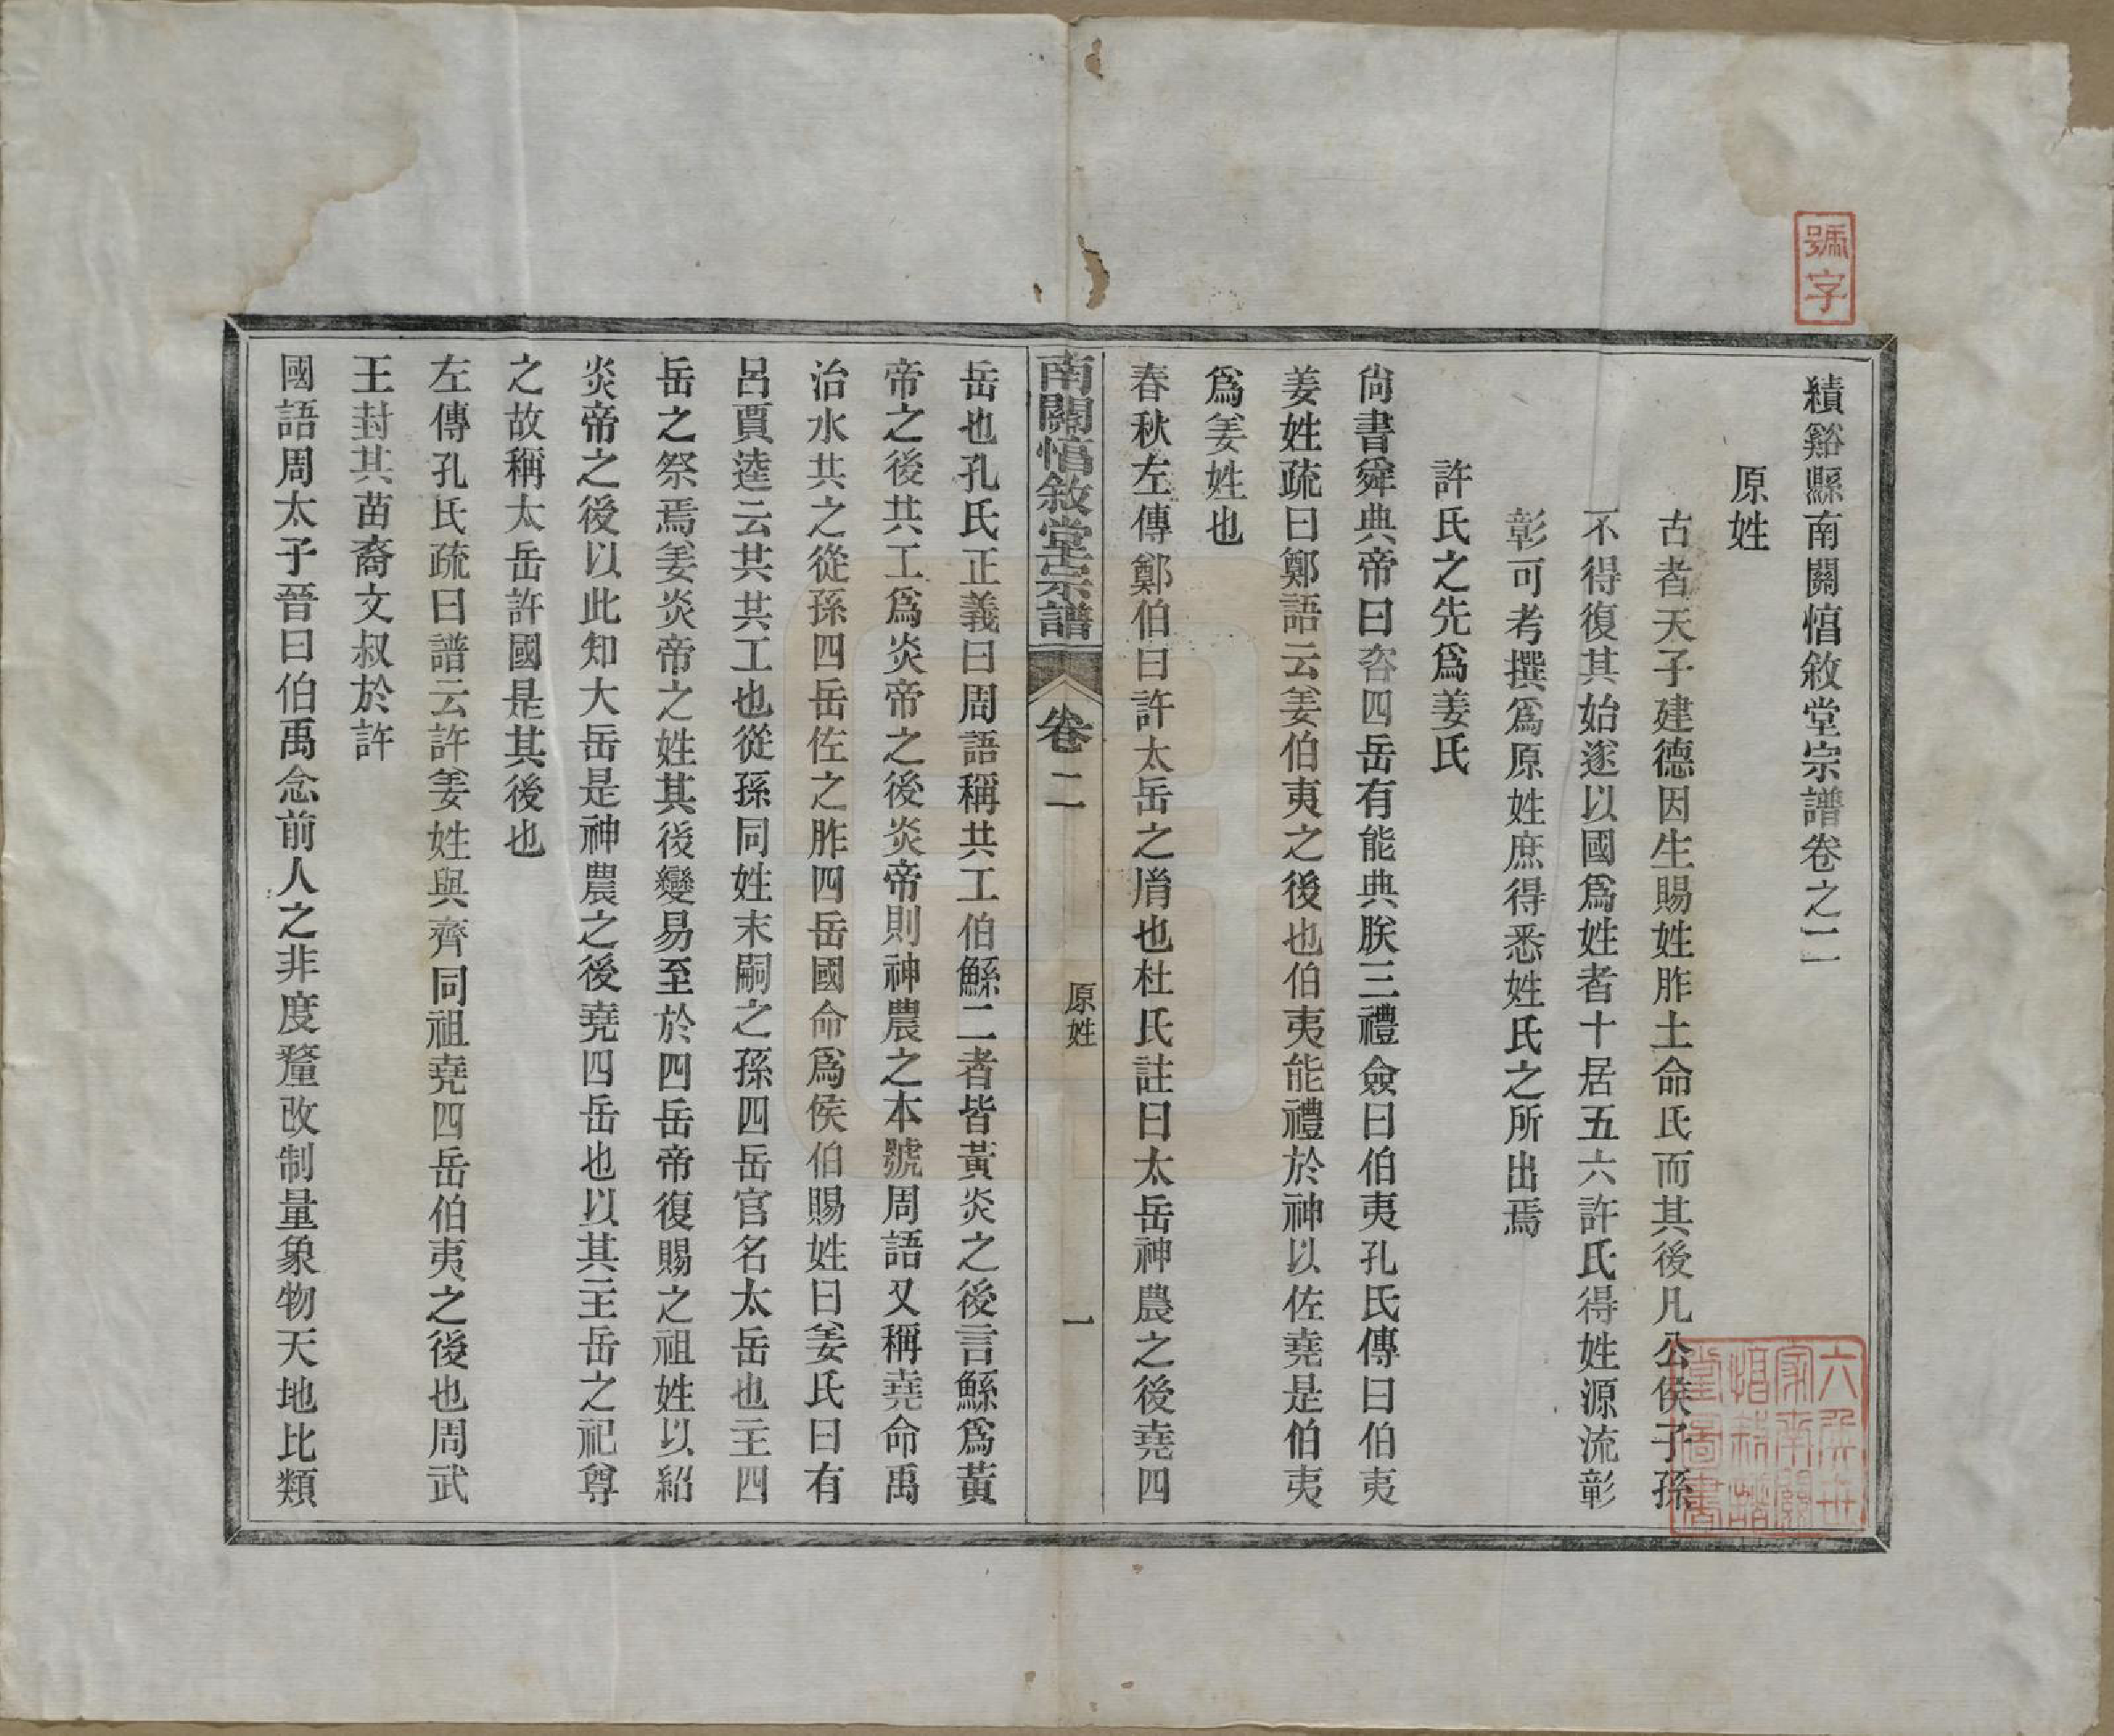 績谿縣南關惇敘堂宗譜卷之二
原姓
古者天子建德因生賜姓胙土命氏而其後凡公侯子孫
不得復其始遂以國爲姓者十居五六許氏得姓源流彰
彰可考撰爲原姓庶得悉姓氏之所出焉
許氏之先爲姜氏
尙書舜典帝曰咨四岳有能典朕三禮僉曰伯夷孔氏傳曰伯夷
姜姓疏曰鄭語云姜伯夷之後也伯夷能禮於神以佐堯是伯夷
爲姜姓也
春秋左傳鄭伯曰許太岳之胤也杜氏註曰太岳神農之後堯四
南關惇敘堂宗譜
卷二
原姓
一
岳也孔氏正義曰周語稱共工伯鯀二者皆黃炎之後言鯀爲黃
帝之後共工爲炎帝之後炎帝則神農之本號周語又稱堯命禹
治水共之從孫四岳佐之胙四岳國命爲侯伯賜姓曰姜氏曰有
呂賈逵云共共工也從孫同姓末嗣之孫四岳官名太岳也主四
岳之祭焉姜炎帝之姓其後變易至於四岳帝復賜之祖姓以紹
炎帝之後以此知大岳是神農之後堯四岳也以其主岳之祀尊
之故稱太岳許國是其後也
左傳孔氏疏曰譜云許姜姓與齊同祖堯四岳伯夷之後也周武
王封其苗裔文叔於許
國語周太子晉曰伯禹念前人之非度釐改制量象物天地比類
號字
六𠔏世
家南關
惇敘譜
堂圖書